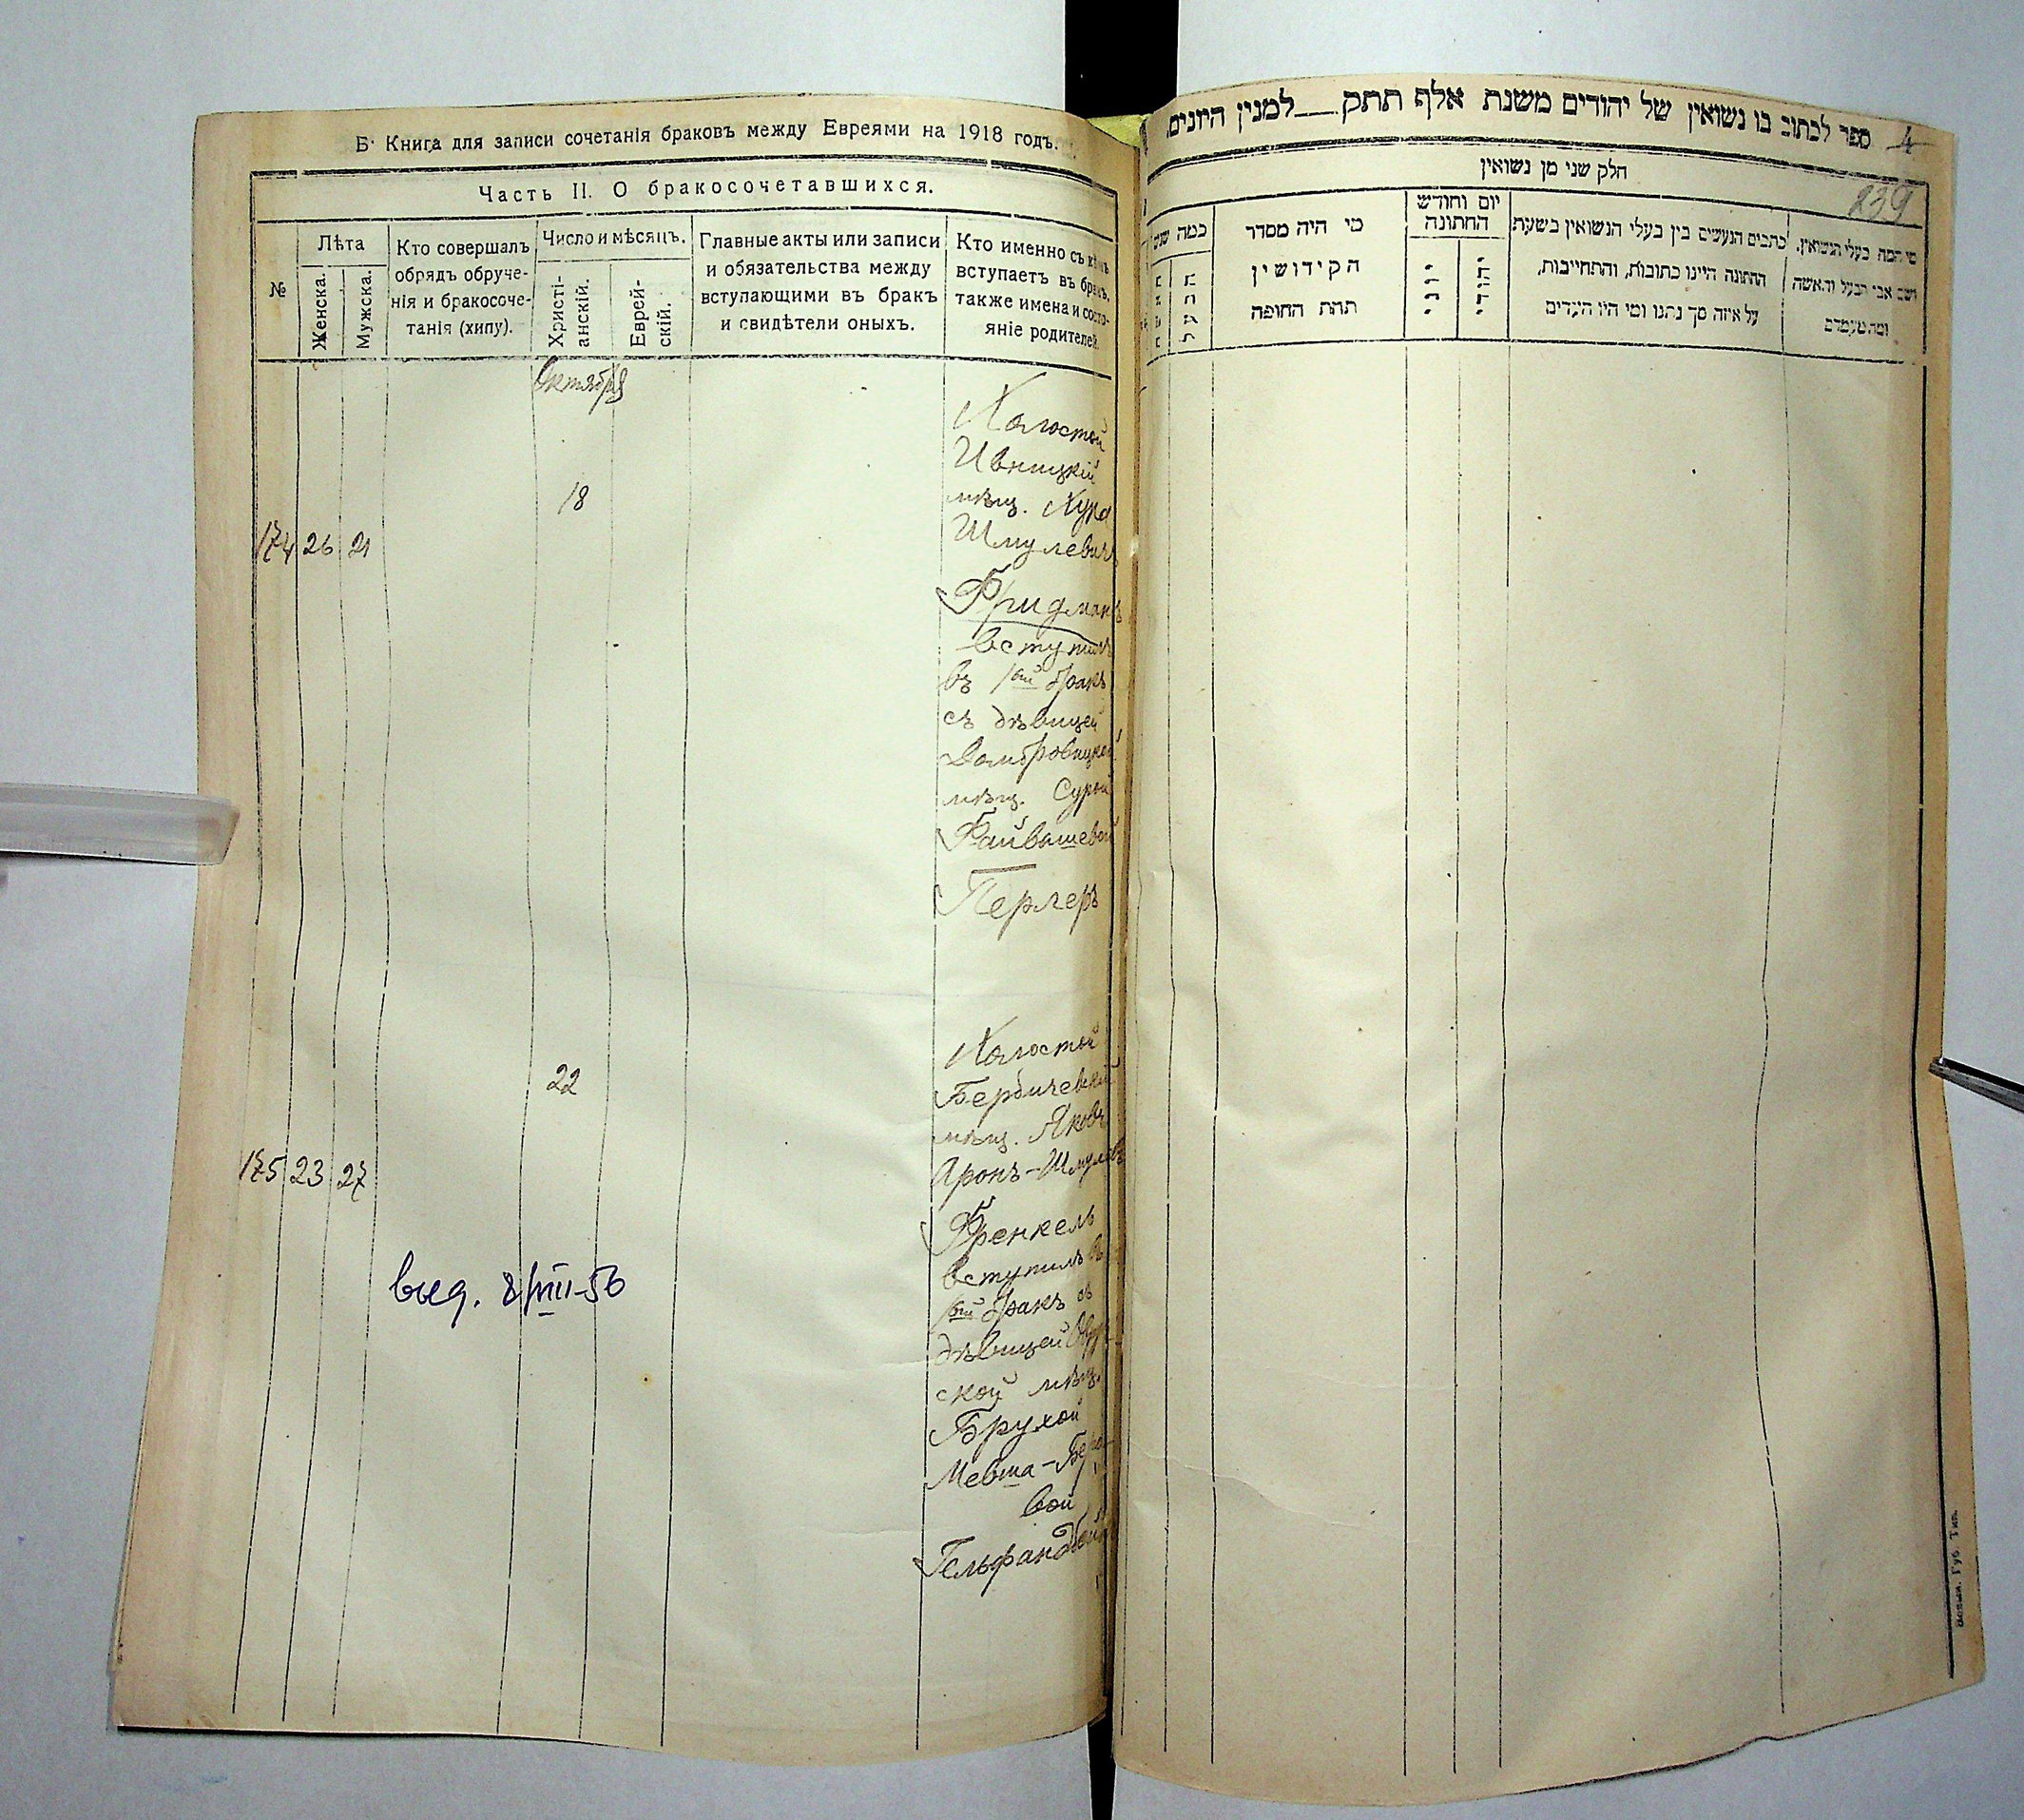 Б. Книга для записи сочетанія браковъ между Евреями на 1918 годъ.
Часть II. О бракосочетавшихся.
№
Лѣта
Женска.
Мужска.
Кто совершалъ
обрядъ обруче-
нія и бракосоче-
танія (хипу).
Число и мѣсяцъ.
Христі-
анскій.
Еврей-
скій.
Главные акты или записи
и обязательства между
вступающими въ бракъ
и свидѣтели оныхъ.
Кто именно съ кѣмъ
вступаетъ въ бракъ,
также имена и состо-
яніе родителей.
Октября
174 26 21
18
Холостой
Ивницкій
мѣщ.
Шмулевичъ
Фридманъ
вступилъ
въ 1ый бракъ
съ дѣвицей
Домбровицкой
мѣщ. Сурой
Файвишевой
Перлеръ
175 23 27
22
Холостой
Бердичевскій
мѣщ. Яковъ
Аронъ-Шмулевъ
Френкель
вступилъ въ
1ый бракъ съ
дѣвицей
ской мѣщ.
Брухой
Мевша-
вой
Гельфандбейнъ
выд. 8/VIII-56
ספר לכתוב בו נשואין של יהודים משנת אלף תתק___למנין היונים
4
חלק שני מן נשואין
239
כמה שנים
מי היה מסדר
הקידושין
תחת החופה
יום וחודש
החתונה
יוני
יהודי
כתבים הנעשים בין בעלי הנשואין בשעת
החתונה היינו כתובות, והתחייבות,
על איזה סך נתנו ומי היו העדים
מי המה בעלי הנשואין,
ושם אבי הבעל והאשה
ומה מעמדם
Волын. Губ. Тип.